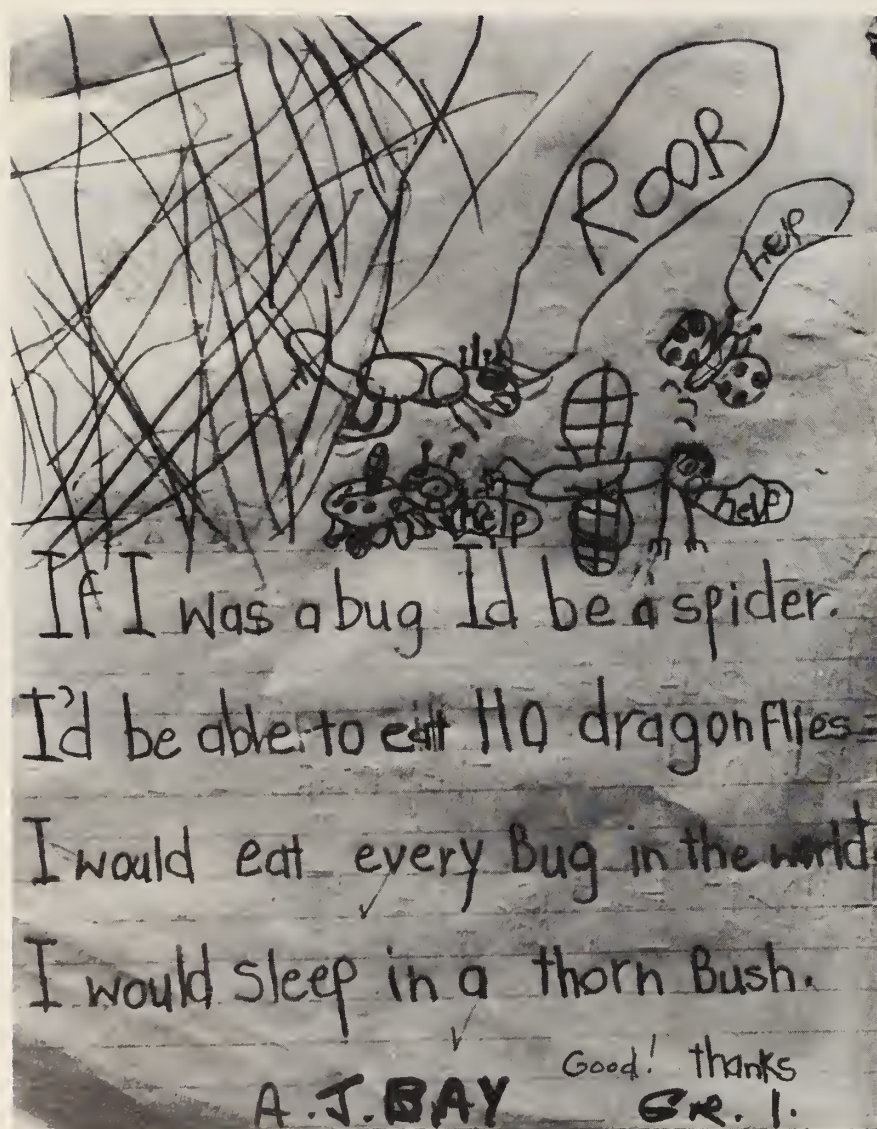 ROOR
help
help
help
If I was a bug Id be a spider.
I'd be able to eat 110 dragonflies
I would eat every Bug in the world.
I would sleep in a thorn Bush.
Good! thanks
A.J. BAY Gr. 1.